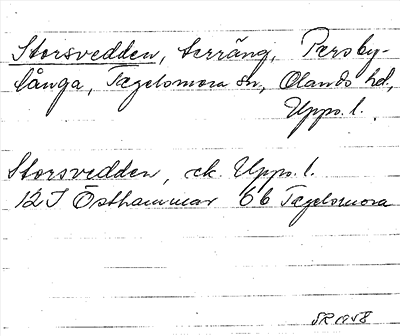 Storsvedden, terräng, Persby-
långa, Tegelsmora sn, Olands hd,
Upps. l.
Storsvedden, ek. Upps. l.
12 I Östhammar 6b Tegelsmora
SR 1958